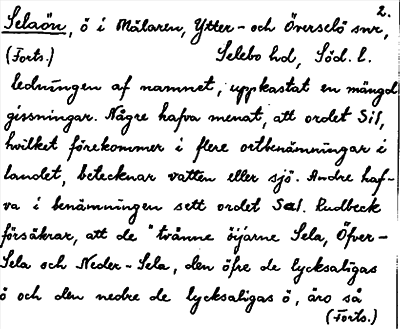 2.
Selaön, ö i Mälaren, Ytter- och Överselö snr,
(Forts.) Selebo hd, Söd. l.
ledningen af namnet, uppkastat en mängd
gissningar. Någre hafva menat, att ordet Sil,
hvilket förekommer i flere ortbenämningar i
landet, betecknar vatten eller sjö. Andre haf-
va i benämningen sett ordet Sal. Rudbeck
försäkrar, att de "tvänne öijarne Sela, Öfver-
Sela och Neder-Sela, den öfre de lycksaligas
ö och den nedre de lycksaligas ö, äro så
(Forts.)